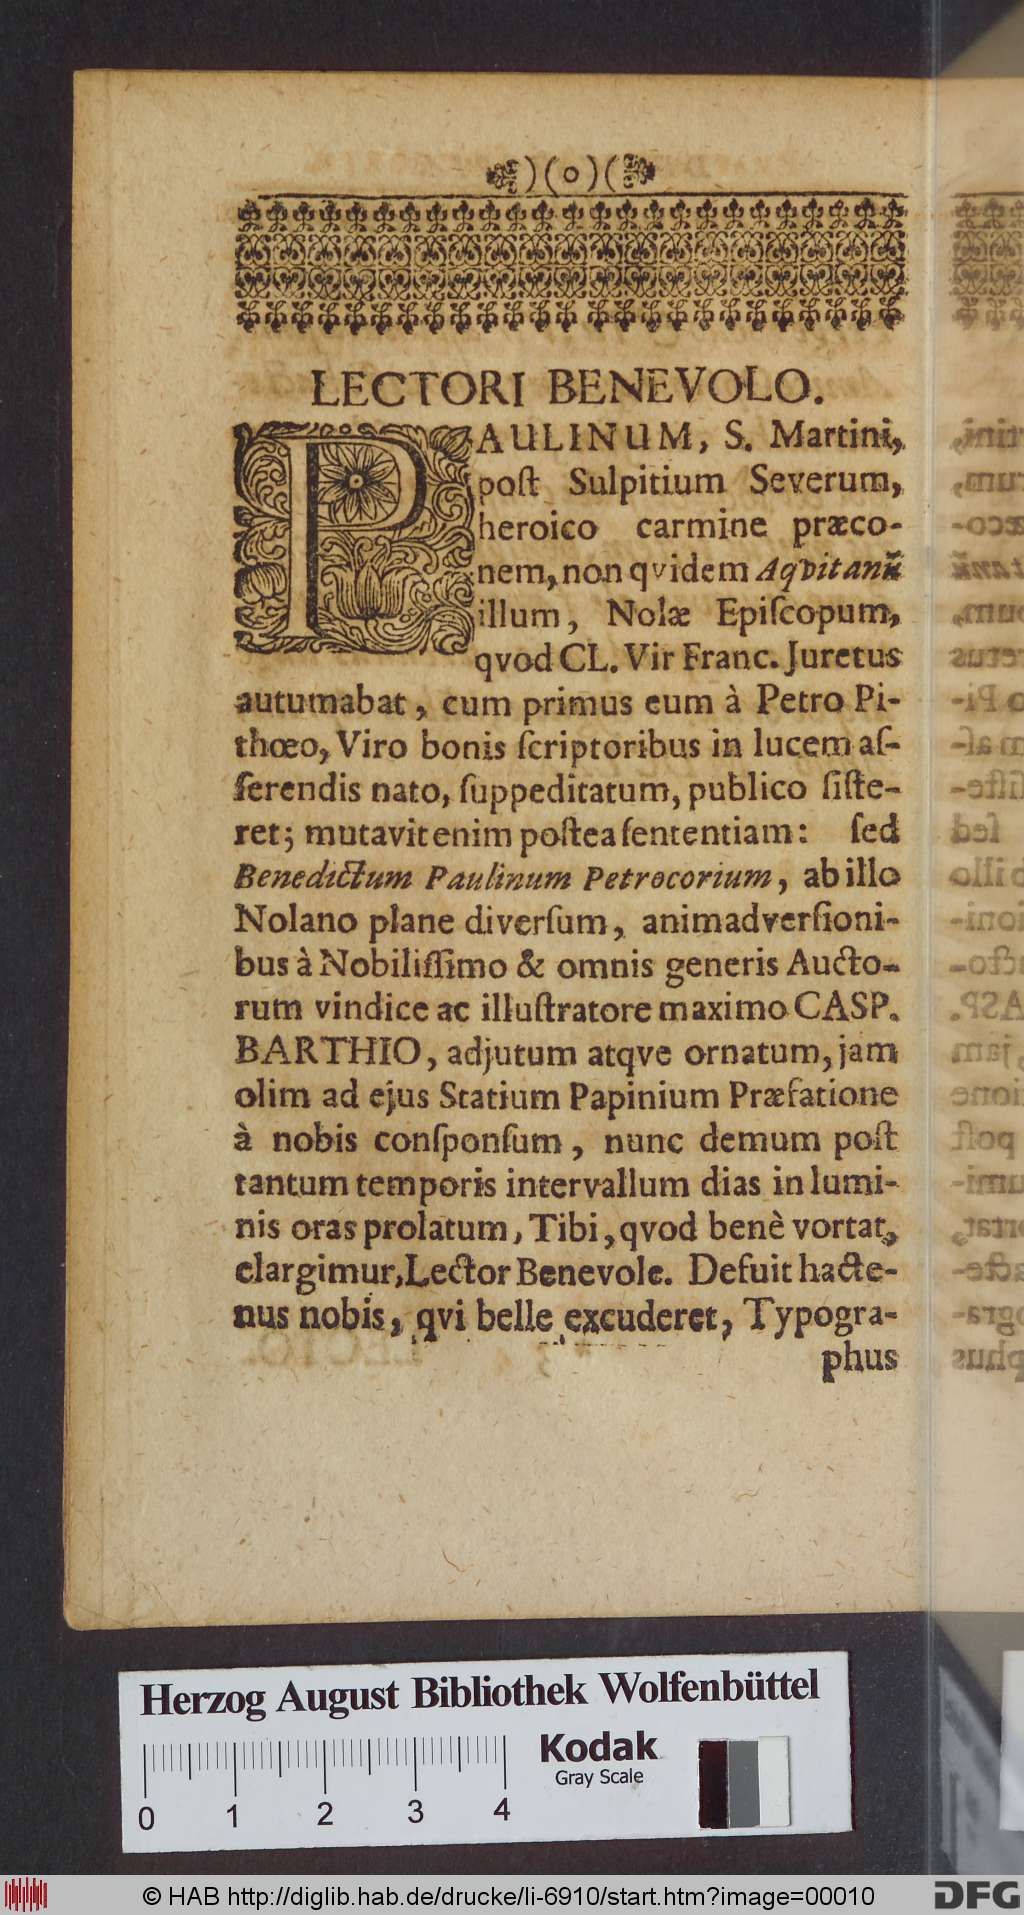 )(o)(
LECTORI BENEVOLO.
PAULINUM, S. Martini,
poſt Sulpitium Severum,
heroico carmine præco-
nem, non qvidem Aqvitanũ
illum, Nolæ Epiſcopum,
qvod CL. Vir Franc. Juretus
autumabat, cum primus eum à Petro Pi-
thœo, Viro bonis ſcriptoribus in lucem aſ-
ſerendis nato, ſuppeditatum, publico ſiſte-
ret; mutavit enim poſtea ſententiam: ſed
Benedictum Paulinum Petrocorium, ab illo
Nolano plane diverſum, animadverſioni-
bus à Nobiliſſimo & omnis generis Aucto-
rum vindice ac illuſtratore maximo CASP.
BARTHIO, adjutum atqve ornatum, jam
olim ad ejus Statium Papinium Præfatione
à nobis conſponſum, nunc demum poſt
tantum temporis intervallum dias in lumi-
nis oras prolatum, Tibi, qvod benè vortat,
elargimur, Lector Benevole. Defuit hacte-
nus nobis, qvi belle excuderet, Typogra-
phus
Herzog August Bibliothek Wolfenbüttel
Kodak
Gray Scale
0 1 2 3 4
© HAB http://diglib.hab.de/drucke/li-6910/start.htm?image=00010
DFG